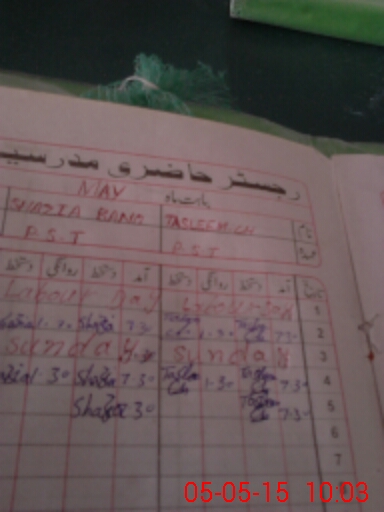 رجسٹر حاضری مدرسین
MAY بابت ماہ
SHAZIA BANO TASLEEM CH نام
P.S.T P.S.T عہدہ
دستخط روانگی دستخط آمد دستخط روانگی دستخط آمد تاریخ
Labour Day 1
1.30 Shazia 7.30 Taslem Ch 1.30 Taslem Ch 7.30 2
Sunday Sunday 3
Shazia 1.30 Shazia 7.30 Taslem Ch 1.30 Taslem Ch 7.30 4
Shazia 7.30 Taslem Ch 7.30 5
6
7
8
05-05-15 10:03